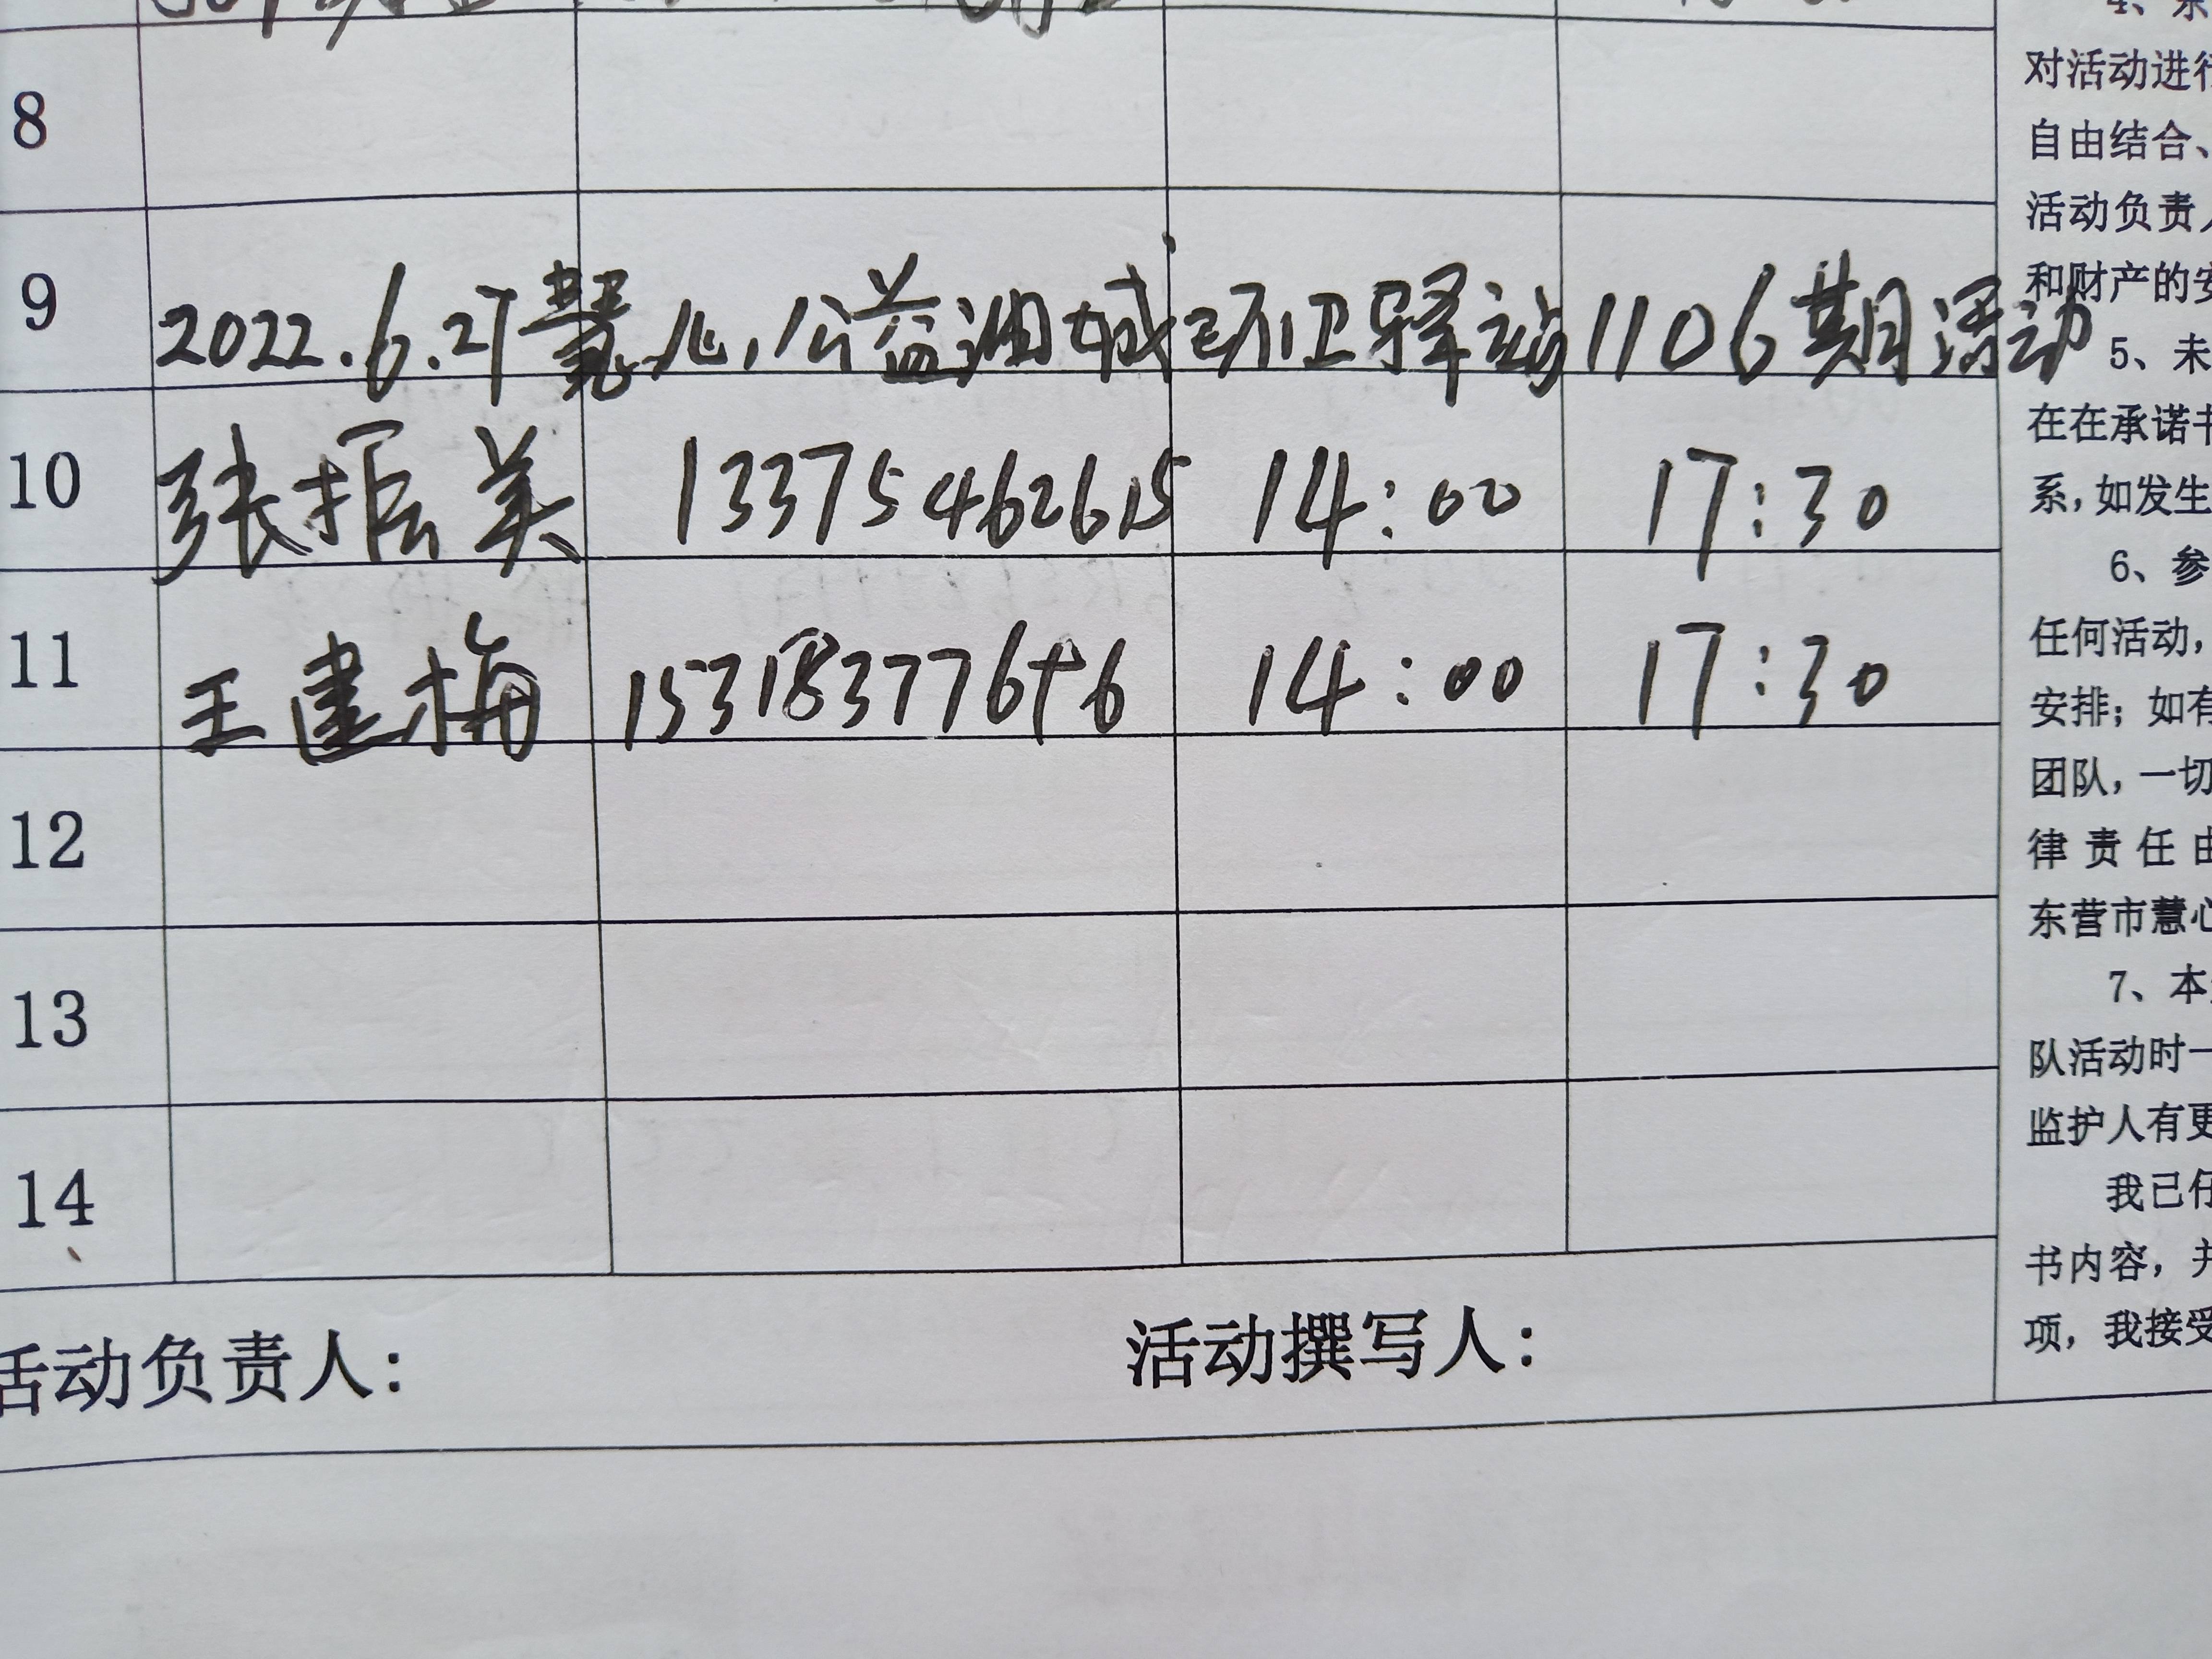 8
9 2022.6.27慧心公益油城环卫驿站1106期活动
10 张振美 13375462615 14:00 17:30
11 王建梅 14:00 17:30
12
13
14
活动负责人: 活动撰写人:
对活动进行
自由结合、
活动负责人
和财产的安
5、未
在在承诺书
系,如发生
6、参
任何活动,
安排;如有
团队,一切
律责任由
东营市慧心
7、本
队活动时一
监护人有更
我已仔
书内容,并
项,我接受